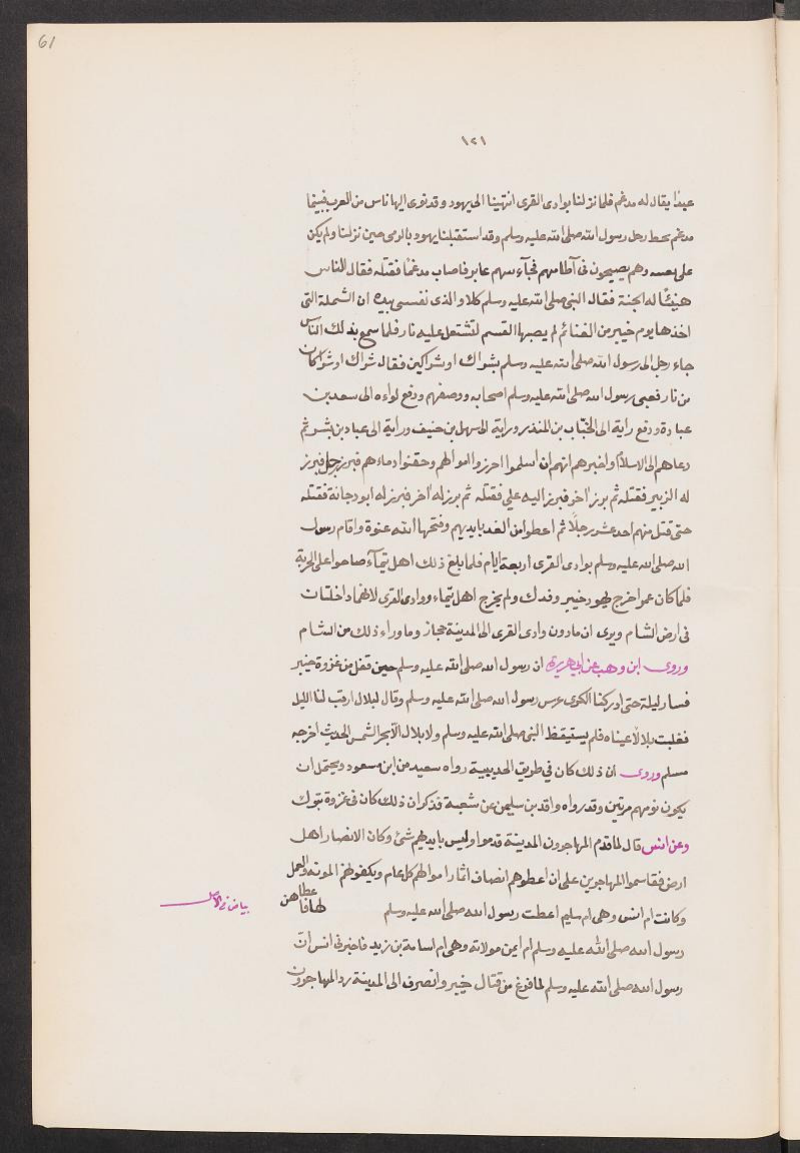 61
١٢١
عبدا يقال له مدعم فلما نزلنا بوادى القرى انتهينا الى يهود وقد ثوى اليها ناس من العرب فبينما
مدعم يحط رحل رسول الله صلى الله عليه وسلم وقد استقبلنا يهود بالرمى حين نزلنا ولم يكن
على تعبية وهم يصيحون فى آطامهم فجآء سهم عاير فاصاب مدعمًا فقتله فقال الناس
هنيئًا له الجنة فقال النبى صلى الله عليه وسلم كلا والذى نفسى بيده ان الشملة التى
اخذها يوم خيبر من الغنائم لم يصبها القسم لتشتعل عليه نار فلما سمع بذلك الناس
جاء رجل الى رسول الله صلى الله عليه وسلم بشراك او شراكين فقال شراك او شراكان
من نار فعبى رسول الله صلى الله عليه وسلم اصحابه ووصفهم ودفع لواءه الى سعد بن
عبادة ودفع راية الى الحباب بن المنذر وراية الى سهل بن حنيف وراية الى عباد بن بشر ثم
دعاهم الى الاسلام واخبرهم انهم ان اسلموا احرزوا اموالهم وحقنوا دماءهم فبرز رجل فبرز
له الزبير فقتله ثم برز اخر فبرز اليه على فقتله ثم برز له اخر فبرز له ابو دجانة فقتله
حتى قتل منهم احد عشر رجلًا ثم اعطوا من الغد بايديهم وفتحها الله عنوة واقام رسول
الله صلى الله عليه وسلم بوادى القرى اربعة ايام فلما بلغ ذلك اهل تيمآء صالحوا على الجزية
فلما كان عمر اخرج يهود خيبر وفدك ولم يخرج اهل تيماء ووادى القرى لانهما داخلتان
فى ارض الشام ويرى ان مادون وادى القرى الى المدينة حجاز وما وراء ذلك من الشام
وروى ابن وهب عن ابى هريرة ان رسول الله صلى الله عليه وسلم حين قفل من غزوة خيبر
فسار ليلة حتى ادركنا الكرى عرس رسول الله صلى الله عليه وسلم وقال لبلال ارقب لنا الليل
فغلبت بلالًا عيناه فلم يستيقظ النبى صلى الله عليه وسلم ولا بلال الا بحر الشمس الحديث اخرجه
مسلم وروى ان ذلك كان في طريق الحديبية رواه سعيد من ابن مسعود ويحتمل ان
يكون نومهم مرتين وقد رواه واقد بن سليمن عن شعبة فذكر ان ذلك كان فى غزوة تبوك
وعن انس قال لما قدم المهاجرون المدينة قدموا وليس بايديهم شئ وكان الانصار اهل
ارض فقاسموا المهاجرين على ان اعطوهم انصاف اثار اموالهم كل عام ويكفونهم المونة والعمل
وكانت ام انس وهى ام سليم اعطت رسول الله صلى الله عليه وسلم لها فاعطاهن
بياض فى الاصل
رسول الله صلى الله عليه وسلم ام ايمن مولاته وهى ام اسامة بن زيد فاخبرنى انس ان
رسول الله صلى الله عليه وسلم لما فرغ من قتال خيبر وانصرف الى المدينة رد المهاجرون